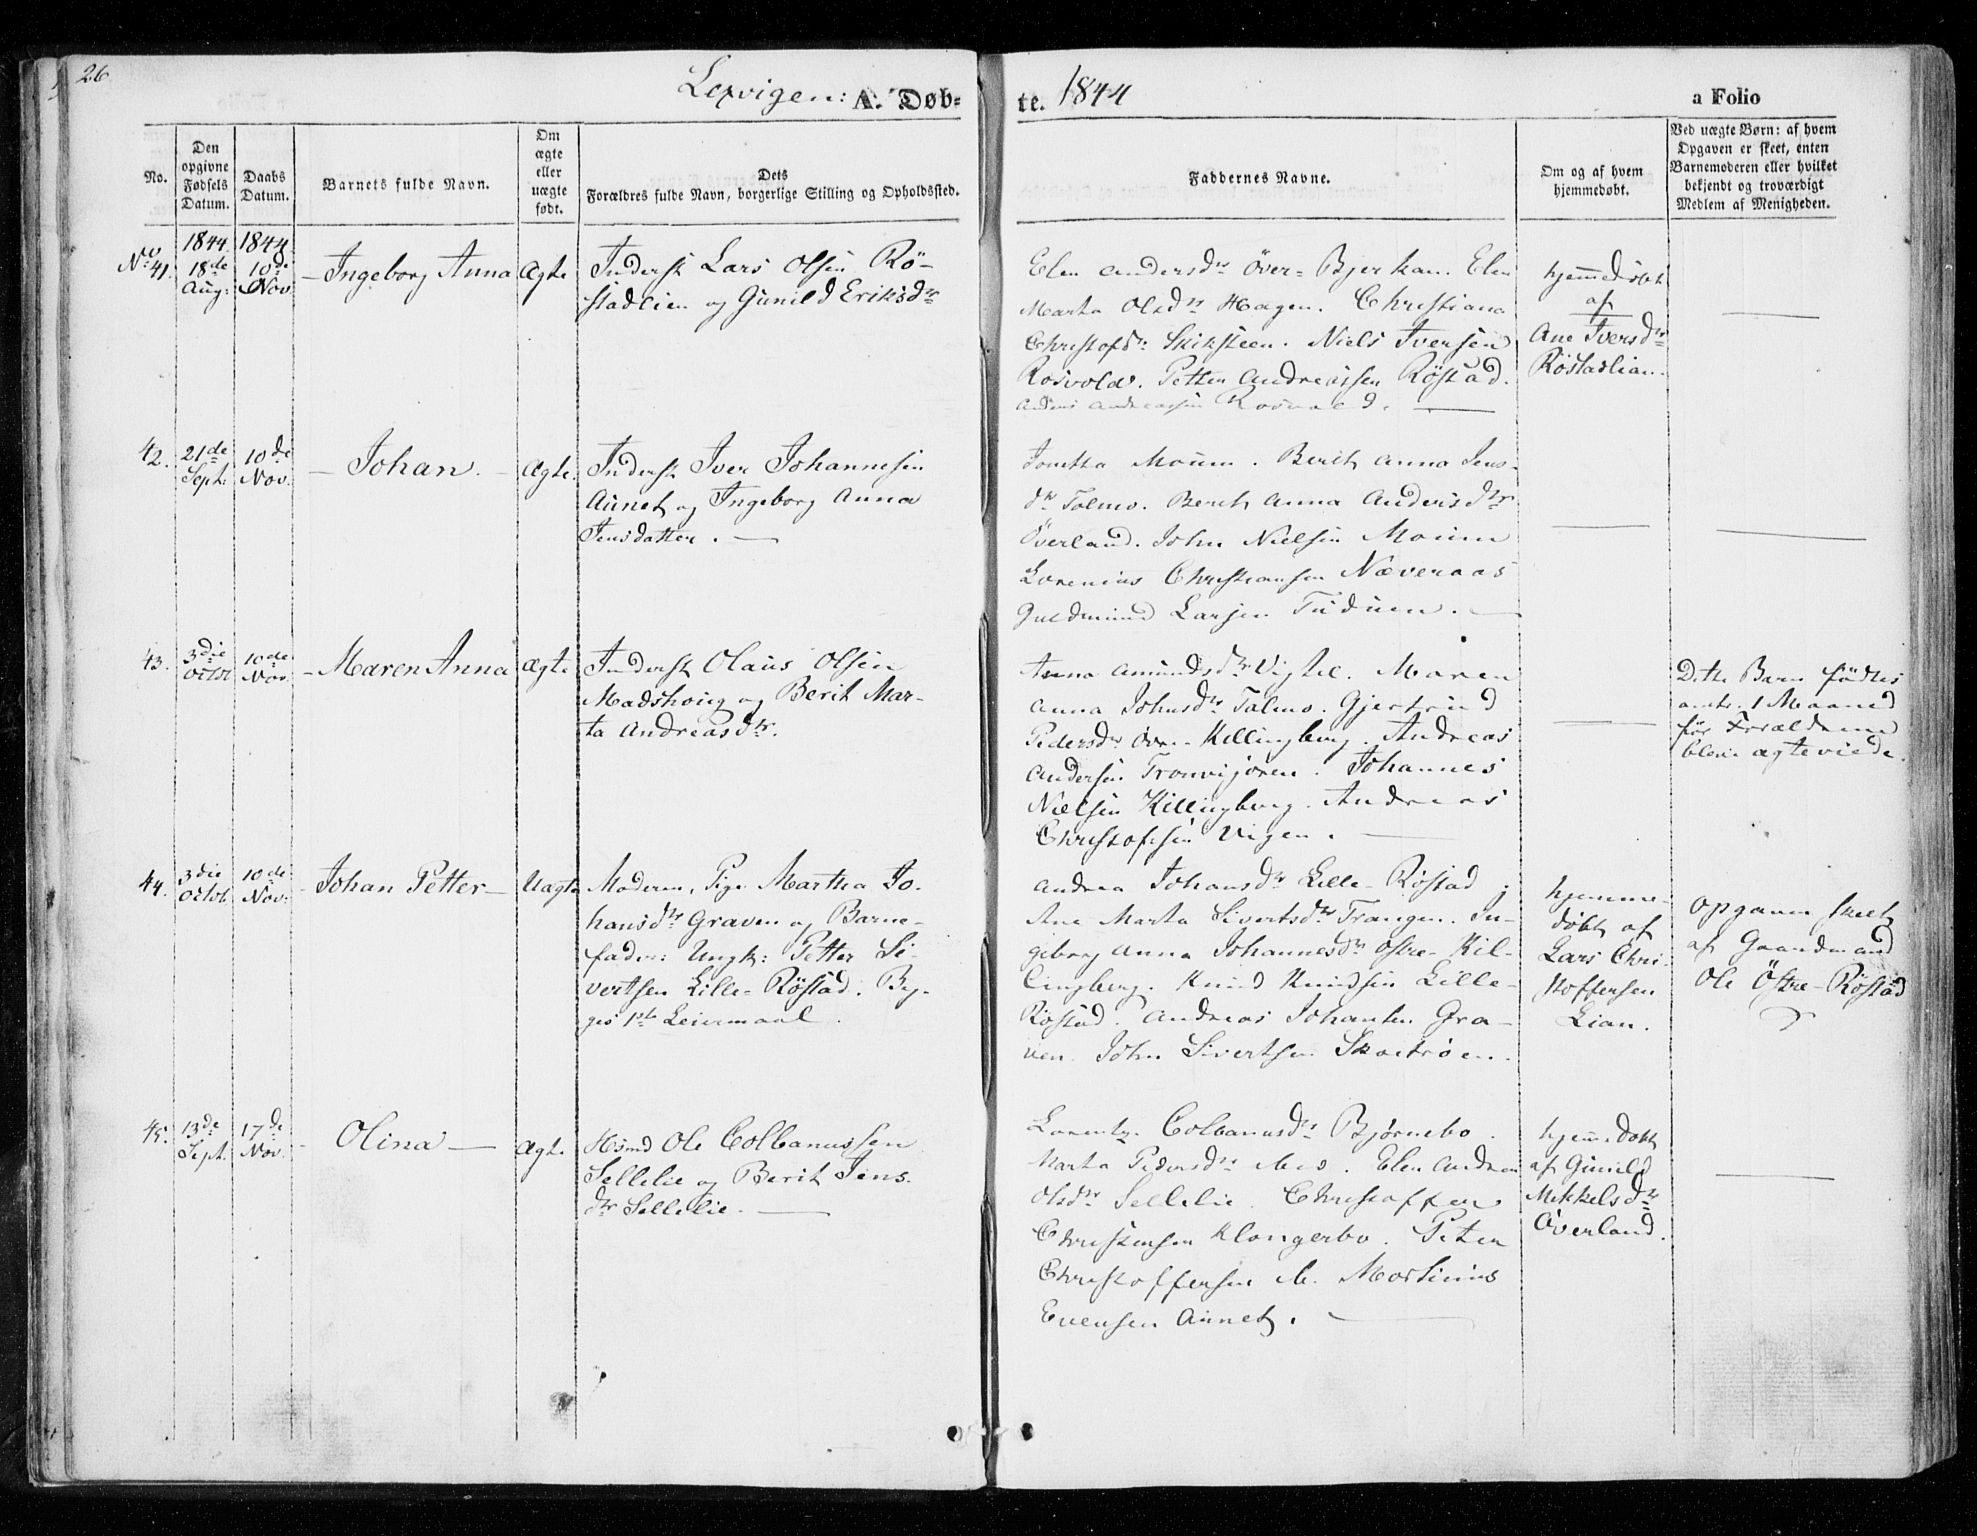 26
Lexvigen: A. Døb-
te. 1844
a Folio
No.
Den opgivne Fødsels Datum.
Daabs Datum.
Barnets fulde Navn.
Om ægte eller uægte født.
Dets
Forældres fulde Navn, borgerlige Stilling og Opholdssted.
Faddernes Navne.
Om og af hvem hjemmedøbt.
Ved uægte Børn: af hvem
Opgaven er skeet, enten
Barnemoderen eller hvilket
bekjendt og troværdigt
Medlem af Menigheden.
1844. 1844
No 41. 18de Aug: 10de Nov. Ingeborg Anna Ægte
Inderst Lars Olsen Rö-
stadlien og Gunild Eriksdr
Elen Andersdr Över-Bjerkan. Elen
Marta Olsdr Hagen. Christiana
Christofdr Skiksteen. Niels Iversen
Rosvold. Petter Andreassen Röstad.
Andreassen
hjemmedöbt
af
Ane Iversdr
Röstadlian.
42. 21de Sept: 10de Nov. Johan. Ægte.
Inderst Iver Johannesen
Aunet og Ingeborg Anna
Jensdatter.
Jonetta Mouum. Berit Anna Jens-
dr Tolmo. Berit Anna Andersdr
Överland. John Nielsen Mouum
Lorenius Christiansen Næveraas
Guldmund Larsen Tuduen.
43. 3die Octbr 10de Nov. Maren Anna Ægte
Inderst Olaus Olsen
Madshoug og Berit Mar-
ta Andreasdr.
Anna Amundsdr Vigtil. Maren
Anna Johnsdr Talmo. Gjertrud
Pedersdr Övre-Killingberg. Andreas
Andersen Tronvigören. Johannes
Nielsen Killingberg. Andreas
Christofsen Vigen.
Dette Barn födtes
omtr. 1 Maaned
för Forældrene
bleve ægteviede.
44. 3die Octob. 10de Nov: Johan Petter Uægte
Moderen, Pige Martha Jo-
hansdr Graven og Barne-
fader: Ungk: Petter Si-
vertsen Lille-Röstad. Beg-
ges 1ste Leiermaal.
Andrea Johansdr Lille-Röstad.
Ane Marta Sivertsdr Trangen. In-
geborg Anna Johannesdr Ostre-Kil-
lingberg. Knud Knudsen Lille-
Röstad. Andreas Johansen Gra-
ven. John Sivertsen Skavröen.
hjemme-
döbt af
Lars Chri-
stoffersen
Lian.
Opgaven skeet
af Gaardmand
Ole Östre-Röstad
45. 13de Sept. 17de Nov. Olina Ægte
Hsmd Ole Colbanussen
Sellelie og Berit Jens-
dr Sellelie.
Lorentz Colbanusdr Björnebo.
Marta Pedersdr ibid. Elen Andrea
Olsdr Sellelie. Christoffer
Christensen Klongerbo. Peter
Christoffersen ib. Mortinus
Evensen Aunet.
hjemmedöbt
af Gunild
Mikkelsdr
Överland.